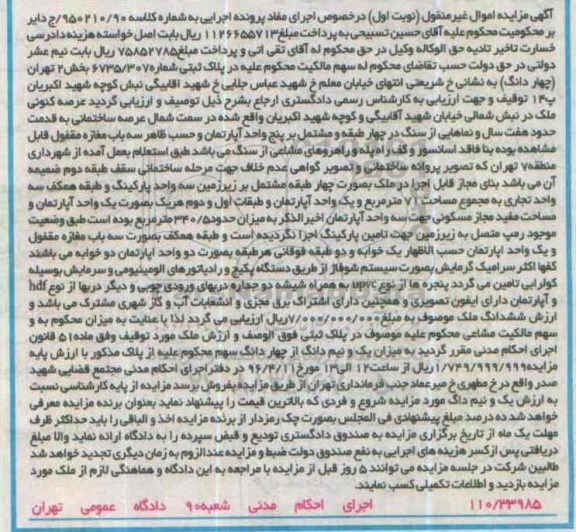 آگهی مزایده اموال غیرمنقول (نوبت اول) درخصوص اجرای مفاد پرونده اجرایی به شماره کلاسه ۹۵۰۲۱۰/۹۰/ج دایر
بر محکومیت محکوم علیه آقای حسین تسبیحی به پرداخت مبلغ ۱۱۲۶۶۵۵۷۱۳ ریال بابت اصل خواسته هزینه دادرسی
خسارت تاخیر تادیه حق الوکاله وکیل در حق محکوم له آقای تقی آنی و پرداخت مبلغ ۷۵۸۵۲۷۸۵ ریال بابت نیم عشر
دولتی در حق دولت حسب تقاضای محکوم له سهم مالکیت محکوم علیه در پلاک ثبتی شماره ۶۷۳۵/۳۰۷ بخش ۲ تهران
(چهار دانگ) به نشانی خ شریعتی انتهای خیابان معلم خ شهید عباس جلایی خ شهید آقابیگی نبش کوچه شهید اکبریان
پ ۱۴ توقیف و جهت ارزیابی به کارشناس رسمی دادگستری ارجاع بشرح ذیل توصیف و ارزیابی گردید عرصه کنونی
ملک در نبش شمالی خیابان شهید آقابیگی و کوچه شهید اکبریان واقع شده در سمت شمال عرصه ساختمانی به قدمت
حدود هفت سال و نماهایی از سنگ در چهار طبقه و مشتمل بر پنج واحد آپارتمان و حسب ظاهر سه باب مغازه مقفول قابل
مشاهده بوده بنا فاقد آسانسور و کف راه پله و راهروهای مشاعی از سنگ می باشد طبق استعلام بعمل آمده از شهرداری
منطقه ۷ تهران که تصویر پروانه ساختمانی و تصویر گواهی عدم خلاف جهت مرحله ساختمانی سقف طبقه دوم ضمیمه
آن می باشد بنای مجاز قابل اجرا در ملک بصورت چهار طبقه مشتمل بر زیرزمین سه واحد پارکینگ و طبقه همکف سه
واحد تجاری به مجموع مساحت ۷۱ مترمربع و یک واحد آپارتمان و طبقات اول و دوم هریک بصورت یک واحد آپارتمان و
مساحت مفید مجاز مسکونی جهت سه واحد آپارتمان اخیر الذکر به میزان حدود ۳۴۰/۵ مترمربع بوده است طبق وضعیت
موجود رمپ متصل به زیرزمین جهت تامین پارکینگ اجرا نگردیده است و طبقه همکف بصورت سه باب مغازه مقفول
و یک واحد آپارتمان حسب الاظهار یک خوابه و دو طبقه فوقانی هرطبقه بصورت دو واحد آپارتمان دو خوابه می باشند
کفها اکثر سرامیک گرمایش بصورت سیستم شوفاژ از طریق دستگاه پکیج و رادیاتورهای آلومینیومی و سرمایش بوسیله
کولر آبی تامین می گردد پنجره ها از نوع upvc به همراه شیشه دو جداره دربهای ورودی چوبی و دیگر دربها از نوع hdf
و آپارتمان دارای آیفون تصویری و همچنین دارای اشتراک برق مجزی و انشعابات آب و گاز شهری مشترک می باشد و
ارزش ششدانگ ملک موصوف به مبلغ ۷/۰۰۰/۰۰۰/۰۰۰ ریال ارزیابی می گردد لذا با عنایت به میزان محکوم به و
سهم مالکیت مشاعی محکوم علیه موصوف در پلاک ثبتی فوق الوصف و ارزش ملک مورد توقیف وفق ماده ۵۱ قانون
اجرای احکام مدنی مقرر گردید به میزان یک و نیم دانگ از چهار دانگ سهم محکوم علیه از پلاک مذکور با ارزش پایه
مزایده ۱/۷۴۹/۹۹۹/۹۹۹ ریال از ساعت ۱۲ الی ۱۳ مورخ ۹۶/۴/۱۱ در دفتر اجرای احکام مدنی مجتمع قضایی شهید
صدر واقع در خ مطهری خ میرعماد جنب فرمانداری تهران از طریق مزایده بفروش برسد مزایده از پایه کارشناسی نسبت
به ارزش یک و نیم دانگ مورد مزایده شروع و فردی که بالاترین قیمت را پیشنهاد نماید بعنوان برنده مزایده معرفی
خواهد شد ده در صد مبلغ پیشنهادی فی المجلس بصورت چک رمزدار از برنده مزایده اخذ و الباقی را باید حداکثر ظرف
مهلت یک ماه از تاریخ برگزاری مزایده به صندوق دادگستری تودیع و قبض سپرده را به دادگاه ارائه نماید والا مبلغ
دریافتی پس از کسر هزینه های اجرایی به نفع صندوق دولت ضبط و مزایده عندالزوم به زمان دیگری تجدید خواهد شد
طالبین شرکت در جلسه مزایده می توانند ۵ روز قبل از مزایده با مراجعه به این دادگاه و هماهنگی لازم از ملک مورد
مزایده بازدید و اطلاعات تکمیلی کسب نمایند.
۱۱۰/۳۳۹۸۵ اجرای احکام مدنی شعبه ۹۰ دادگاه عمومی تهران